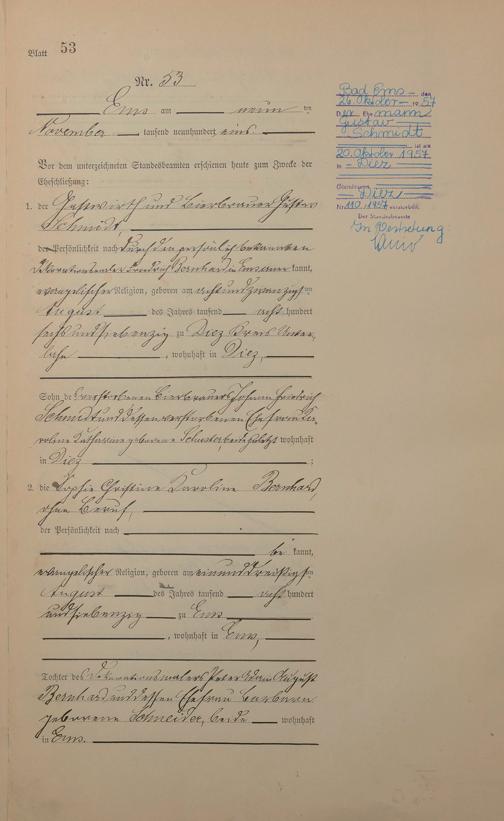 Blatt 53
Nr. 53
Ems am neun ten
November tausend neunhundert eins
Vor dem unterzeichneten Standesbeamten erschienen heute zum Zwecke der
Eheschließung:
1. der Gastwirth und Bierbrauer Gustav
Schmidt,
der Persönlichkeit nach durch den persönlich bekannten
Dekorationsmaler Friedrich Bernhard in Ems anerkannt,
evangelischer Religion, geboren am acht und zwanzigsten
August des Jahres tausend acht hundert
sechs und siebenzig zu Diez Kreis Unter-
lahn, wohnhaft in Diez,
Sohn des verstorbenen Bierbrauers Johann Friedrich
Schmidt und dessen verstorbenen Ehefrau Ka-
roline Katharine geborene Schuster, beide zuletzt wohnhaft
in Diez;
2. die Sophie Christine Karoline Bernhard,
ohne Beruf,
der Persönlichkeit nach
be kannt,
evangelischer Religion, geboren am einunddreißigsten
August des Jahres tausend acht hundert
und siebenzig zu Ems
, wohnhaft in Ems,
Tochter des Dekorationsmalers Peter Adam August
Bernhard und dessen Ehefrau Barbara
geborene Schneider, beide wohnhaft
in Ems.
Bad Ems den
26. Oktober 1957
Der Ehemann
Gustav
Schmidt
ist am
20. Oktober 1957
in Diez
Diez
Nr. 110/1957
Der Standesbeamte
In Vertretung: